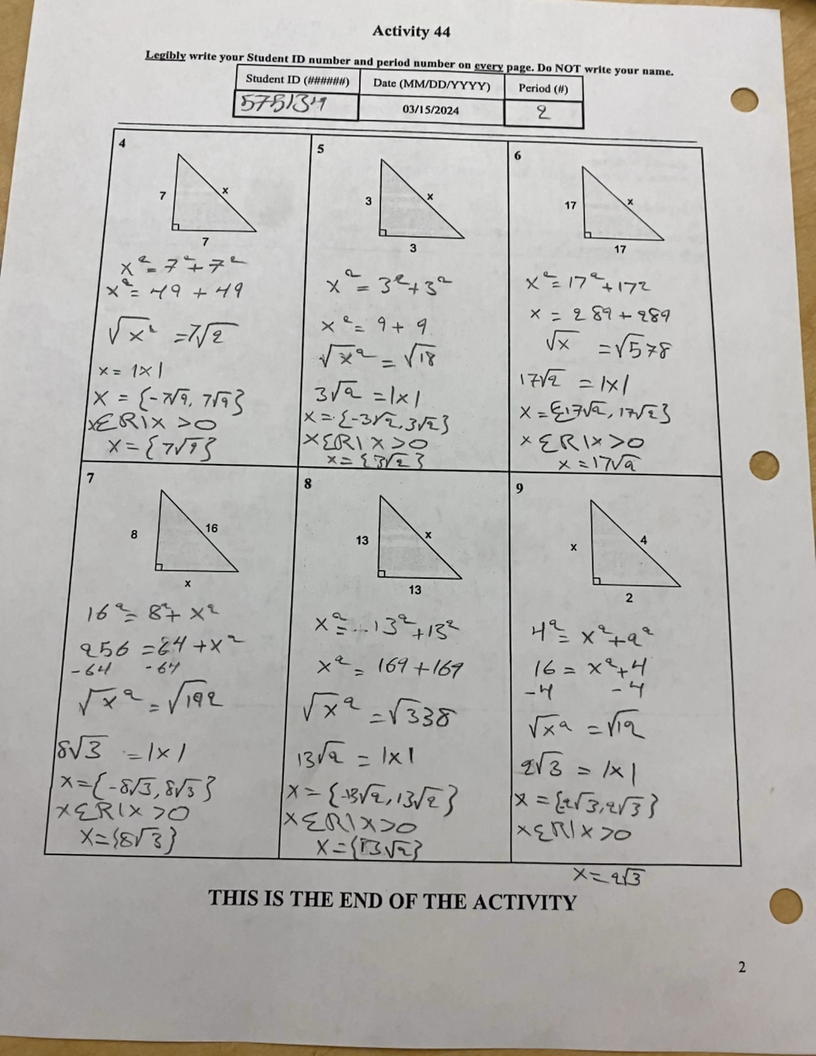 Activity 44
Legibly write your Student ID number and period number on every page. Do NOT write your name.
Student ID (######) Date (MM/DD/YYYY) Period (#)
03/15/2024 2
4
7
x
7
x² = 7² + 7²
x² = 49 + 49
√x² = 7√2
x = |x|
x = {-7√2, 7√2}
xƐR|x >0
x = {7√2}
5
3
x
3
x² = 3² + 3²
x² = 9 + 9
√x² = √18
3√2 = |x|
x = {-3√2, 3√2}
xƐR|x >0
x = {3√2}
6
17
x
17
x² = 17² + 172
x = 289 + 289
√x = √578
17√2 = |x|
x = {-17√2, 17√2}
xƐR|x >0
x = 17√2
7
8
16
x
16² = 8² + x²
256 = 64 + x²
-64 -64
√x² = √192
8√3 = |x|
x = {-8√3, 8√3}
xƐR|x >0
x = {8√3}
8
13
x
13
x² = 13² + 13²
x² = 169 + 169
√x² = √338
13√2 = |x|
x = {-13√2, 13√2}
xƐR|x >0
x = {13√2}
9
x
4
2
4² = x² + 2²
16 = x² + 4
-4 -4
√x² = √12
2√3 = |x|
x = {-2√3, 2√3}
xƐR|x >0
x = 2√3
THIS IS THE END OF THE ACTIVITY
2